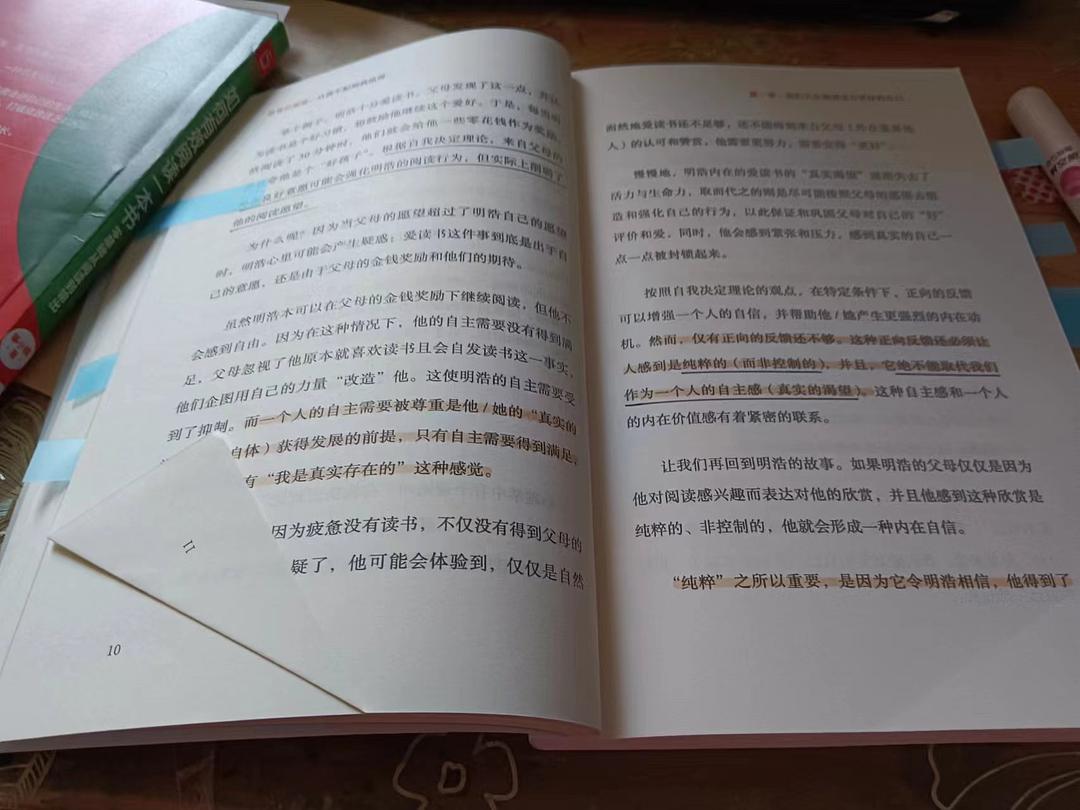 如何有效阅读一本书
举个例子，明浩十分爱读书。父母发现了这一点，并认
为读书是个好习惯，想鼓励他继续这个爱好。于是，每当明
浩阅读了30分钟时，他们就会给他一些零花钱作为奖励，
他是个“好孩子”。根据自我决定理论，来自父母的
良好意愿可能会强化明浩的阅读行为，但实际上削弱了
他的阅读愿望。
为什么呢？因为当父母的愿望超过了明浩自己的愿望
时，明浩心里可能会产生疑惑：爱读书这件事到底是出于自
己的意愿，还是由于父母的金钱奖励和他们的期待。
虽然明浩本可以在父母的金钱奖励下继续阅读，但他不
会感到自由。因为在这种情况下，他的自主需要没有得到满
足，父母忽视了他原本就喜欢读书且会自发读书这一事实，
他们企图用自己的力量“改造”他。这使明浩的自主需要受
到了抑制。而一个人的自主需要被尊重是他/她的“真实的
自体）获得发展的前提，只有自主需要得到满足，
有“我是真实存在的”这种感觉。
因为疲惫没有读书，不仅没有得到父母的
疑了，他可能会体验到，仅仅是自然
11
10
而然地爱读书还不足够，还不能得到来自父母（外在重要他
人）的认可和赞赏，他需要更努力，需要变得“更好”。
慢慢地，明浩内在的爱读书的“真实渴望”逐渐失去了
活力与生命力，取而代之的则是尽可能按照父母的愿望去塑
造和强化自己的行为，以此保证和巩固父母对自己的“好”
评价和爱。同时，他会感到紧张和压力，感到真实的自己一
点一点被封锁起来。
按照自我决定理论的观点，在特定条件下，正向的反馈
可以增强一个人的自信，并帮助他/她产生更强烈的内在动
机。然而，仅有正向的反馈还不够，这种正向反馈还必须让
人感到是纯粹的（而非控制的），并且，它绝不能取代我们
作为一个人的自主感（真实的渴望）。这种自主感和一个人
的内在价值感有着紧密的联系。
让我们再回到明浩的故事。如果明浩的父母仅仅是因为
他对阅读感兴趣而表达对他的欣赏，并且他感到这种欣赏是
纯粹的、非控制的，他就会形成一种内在自信。
“纯粹”之所以重要，是因为它令明浩相信，他得到了